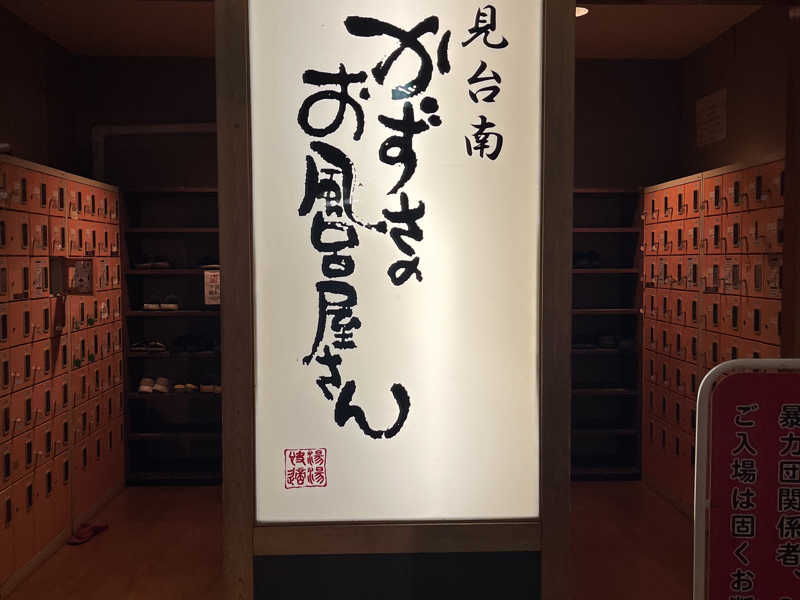 見台南
かずさの
お風呂屋さん
湯湯
快適
暴力団関係者、
ご入場は固くお